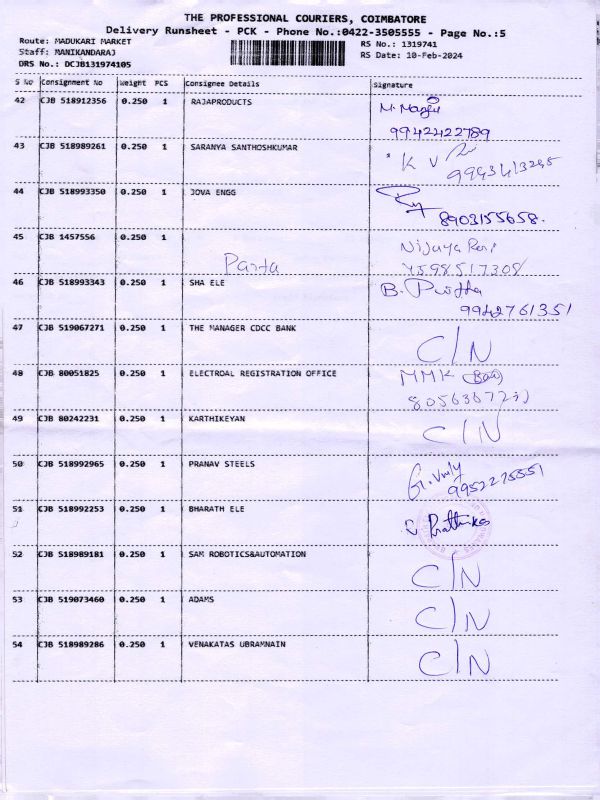 THE PROFESSIONAL COURIERS, COIMBATORE
Delivery Runsheet - PCK - Phone No.:0422-3505555 - Page No.:5
Route: MADUKARI MARKET RS No.: 1319741
Staff: MANIKANDARAJ RS Date: 10-Feb-2024
DRS No.: DCJB131974105
S No Consignment No Weight PCS Consignee Details Signature
42 CJB 518912356 0.250 1 RAJAPRODUCTS
9942422789
43 CJB 518989261 0.250 1 SARANYA SANTHOSHKUMAR K V
44 CJB 518993350 0.250 1 JOVA ENGG
8903155658.
45 CJB 1457556 0.250 1
46 CJB 518993343 0.250 1 SHA ELE B.
9942761351
47 CJB 519067271 0.250 1 THE MANAGER CDCC BANK C/N
48 CJB 80051825 0.250 1 ELECTROAL REGISTRATION OFFICE MMK
49 CJB 80242231 0.250 1 KARTHIKEYAN C/N
50 CJB 518992965 0.250 1 PRANAV STEELS
9952275551
51 CJB 518992253 0.250 1 BHARATH ELE
52 CJB 518989181 0.250 1 SAM ROBOTICS&AUTOMATION C/N
53 CJB 519073460 0.250 1 ADAMS C/N
54 CJB 518989286 0.250 1 VENAKATAS UBRAMNAIN C/N